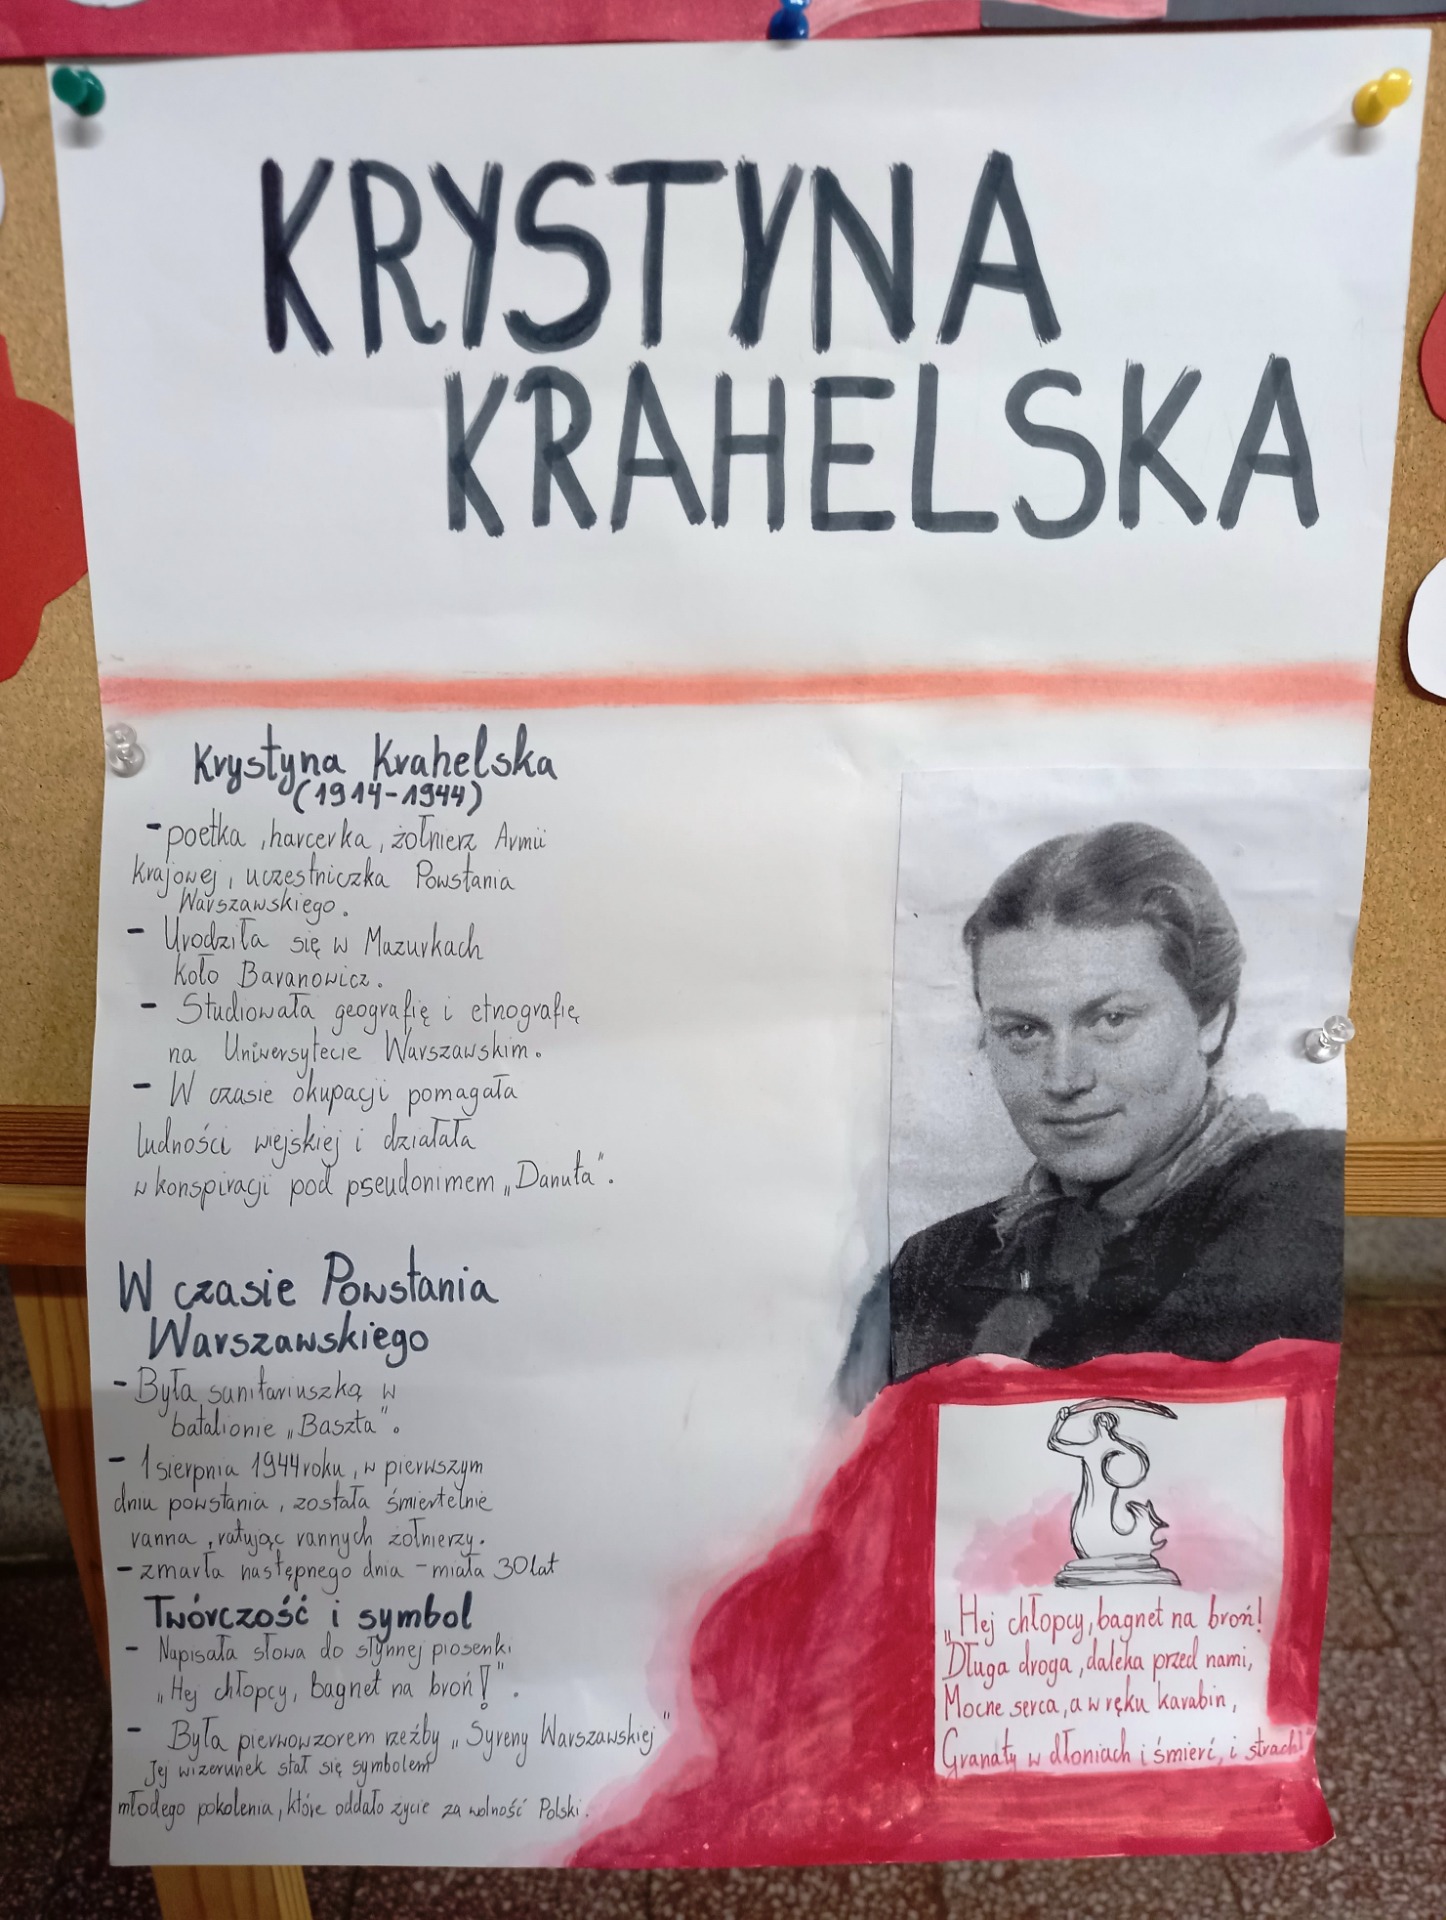 KRYSTYNA
KRAHELSKA
Krystyna Krahelska
(1914-1944)
- poetka, harcerka, żołnierz Armii
Krajowej, uczestniczka Powstania
Warszawskiego.
- Urodziła się w Mazurkach
koło Baranowicz.
- Studiowała geografię i etnografię
na Uniwersytecie Warszawskim.
- W czasie okupacji pomagała
ludności wiejskiej i działała
w konspiracji pod pseudonimem „Danuta".
W czasie Powstania
Warszawskiego
- Była sanitariuszką w
batalionie „Baszta".
- 1 sierpnia 1944 roku, w pierwszym
dniu powstania, została śmiertelnie
ranna, ratując rannych żołnierzy.
- zmarła następnego dnia - miała 30 lat
Twórczość i symbol
- Napisała słowa do słynnej piosenki
„Hej chłopcy, bagnet na broń!".
- Była pierwowzorem rzeźby „Syreny Warszawskiej"
Jej wizerunek stał się symbolem
młodego pokolenia, które oddało życie za wolność Polski.
„Hej chłopcy, bagnet na broń!
Długa droga, daleka przed nami,
Mocne serca, a w ręku karabin,
Granaty w dłoniach i śmierć, i strach!"